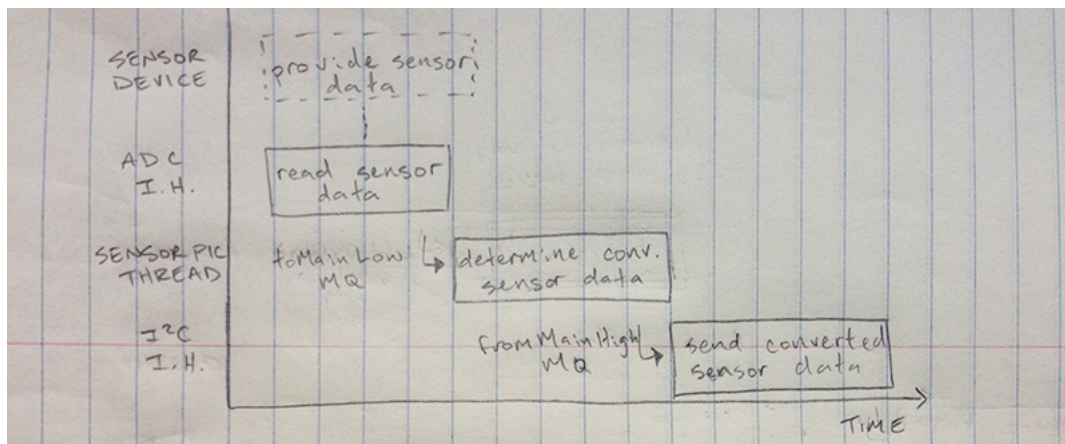 SENSOR
DEVICE
provide sensor
data
ADC
I.H.
read sensor
data
SENSOR PIC
THREAD
toMainLow
MQ
determine conv.
sensor data
I²C
I.H.
fromMainHigh
MQ
send converted
sensor data
TIME